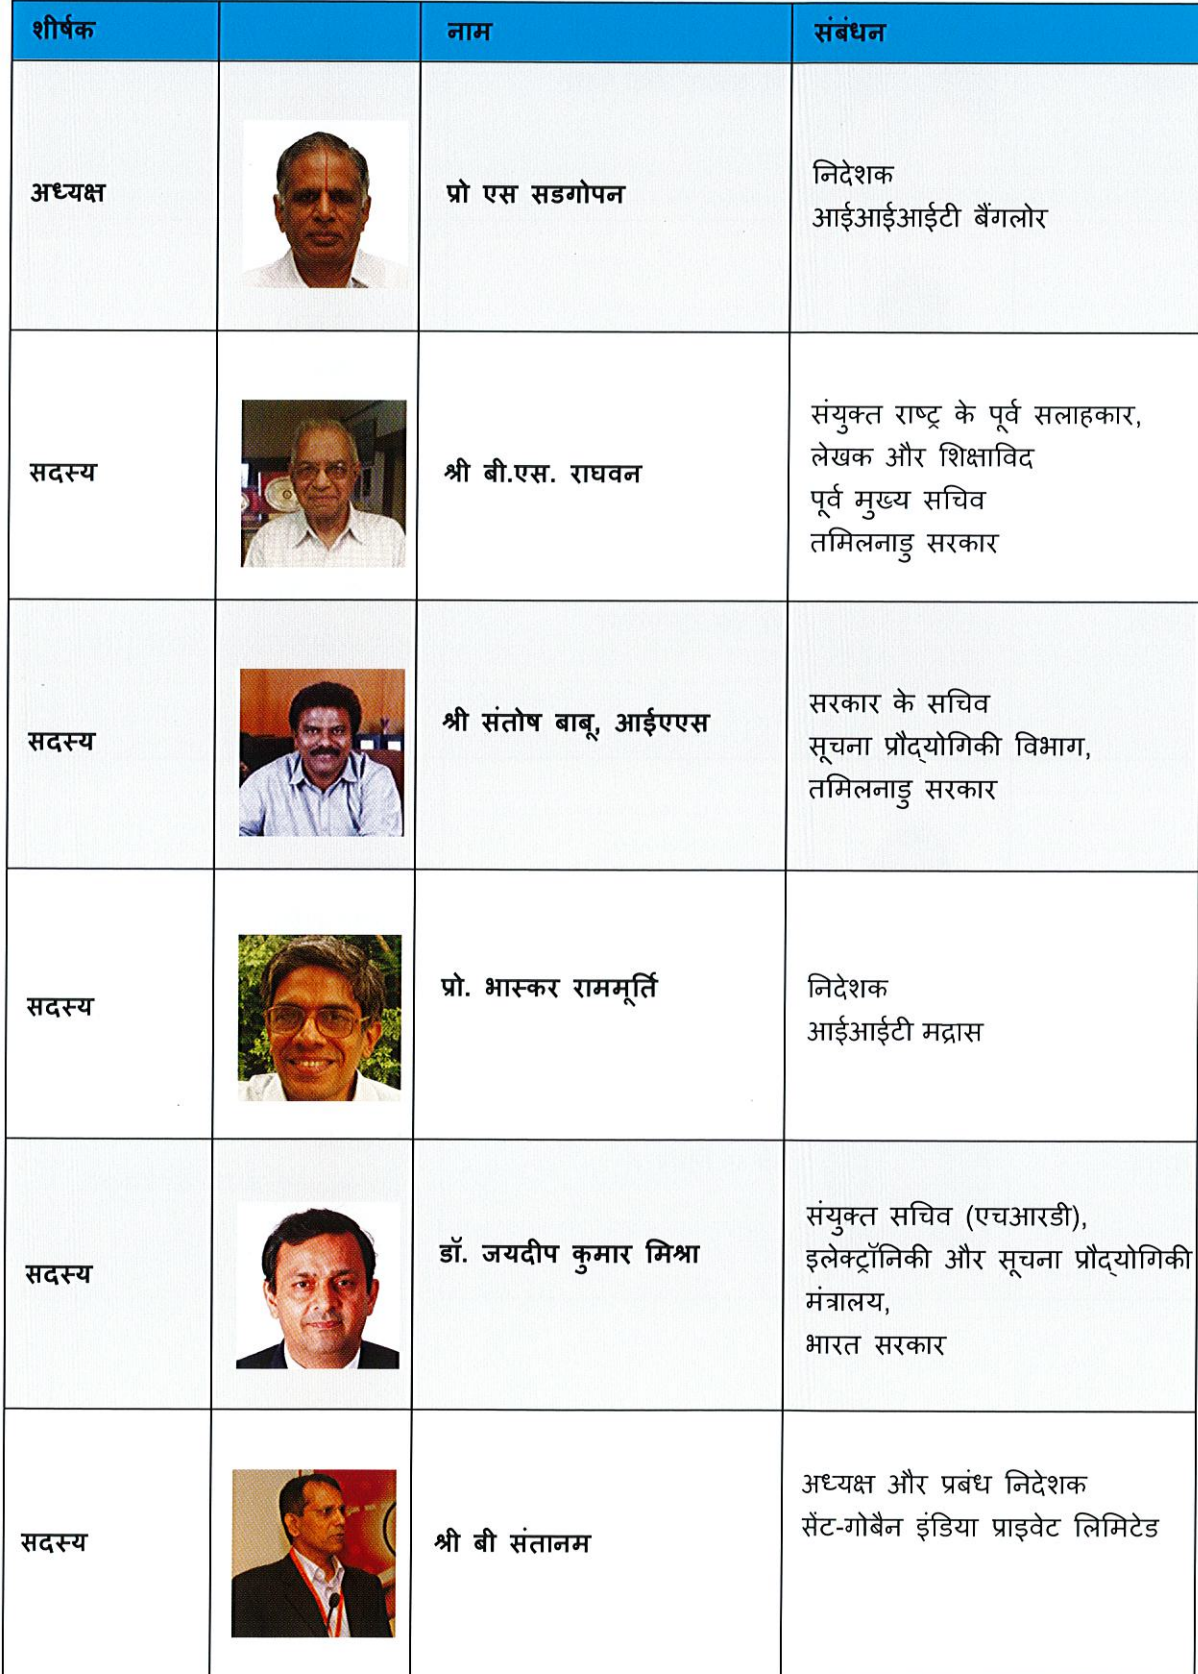 शीर्षक नाम संबंधन
अध्यक्ष
प्रो एस सडगोपन
निदेशक
आईआईआईटी बैंगलोर
सदस्य
श्री बी.एस. राघवन
संयुक्त राष्ट्र के पूर्व सलाहकार,
लेखक और शिक्षाविद
पूर्व मुख्य सचिव
तमिलनाडु सरकार
सदस्य
श्री संतोष बाबू, आईएएस
सरकार के सचिव
सूचना प्रौद्योगिकी विभाग,
तमिलनाडु सरकार
सदस्य
प्रो. भास्कर राममूर्ति
निदेशक
आईआईटी मद्रास
सदस्य
डॉ. जयदीप कुमार मिश्रा
संयुक्त सचिव (एचआरडी),
इलेक्ट्रॉनिकी और सूचना प्रौद्योगिकी
मंत्रालय,
भारत सरकार
सदस्य
श्री बी संतानम
अध्यक्ष और प्रबंध निदेशक
सेंट-गोबैन इंडिया प्राइवेट लिमिटेड